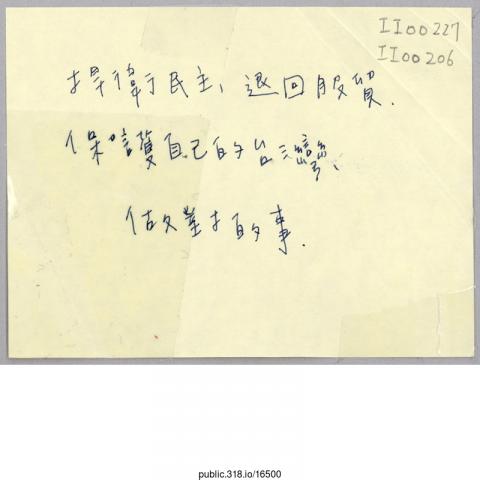 II00227
II00206
捍衛民主，退回服貿．
保護自己的台灣、
做對的事．
public.318.io/16500